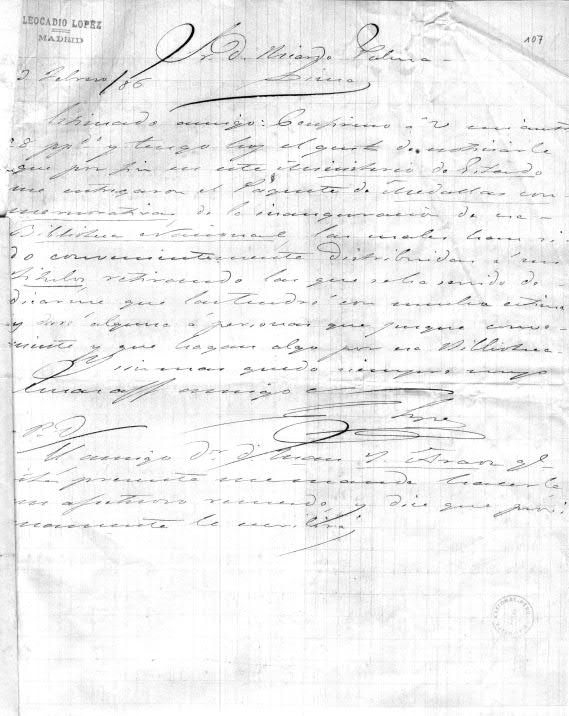 LEOCADIO LOPEZ
MADRID
107
Sr. D. Ricardo Palma
Lima
2 Febrero /86
Estimado amigo: Confirmo á V mi
pp.º y tengo hoy el gusto de noticiarle
que por fin en este Ministerio de Estado
me entregaron el Paquete de Medallas con-
memorativas de la inauguración de esa
Biblioteca Nacional las cuales han si-
do convenientemente distribuidas á sus
titulos retirando las que se ha servido de-
dicarme que las tendré con mucha estima
y daré alguna á personas que juzgue conve-
niente y que hagan algo por esa Biblioteca
Y sin mas quedo siempre muy
amigo
Lopez
P. D.
El amigo Dn. Juan
presente me manda hacerle
un afectuoso recuerdo, y dice que proxi-
mamente le escribirá